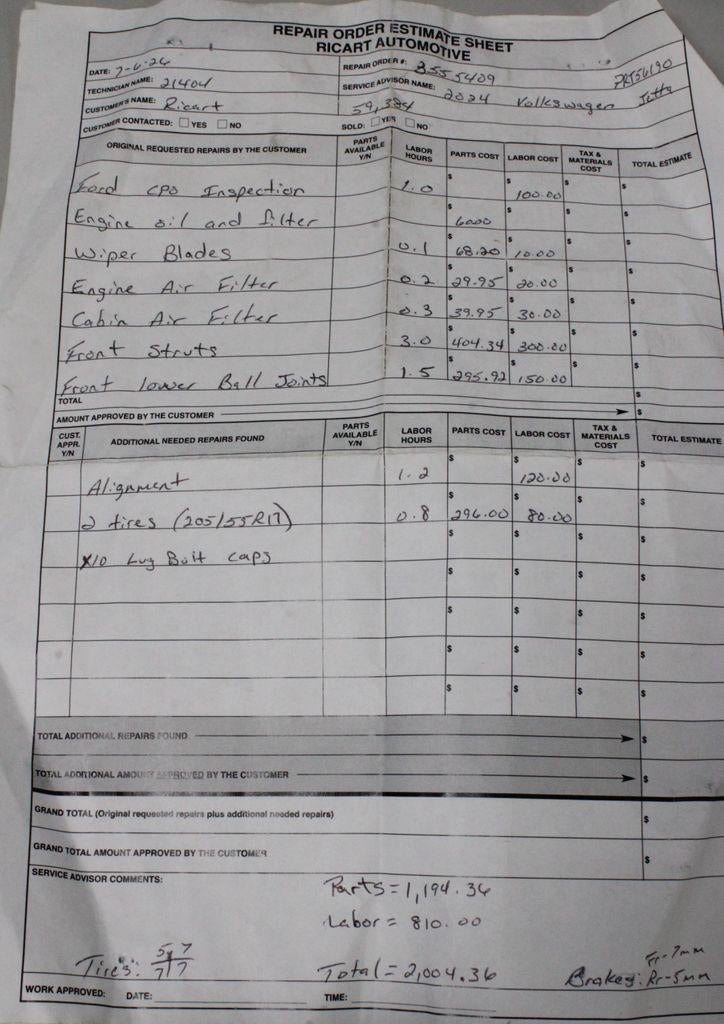 REPAIR ORDER ESTIMATE SHEET
RICART AUTOMOTIVE
DATE: 7-6-26 REPAIR ORDER #: 3555409 PRT56190
TECHNICIAN NAME: 21404 SERVICE ADVISOR NAME: 2024 Volkswagen Jetta
CUSTOMER'S NAME: Ricart 59,384
CUSTOMER CONTACTED: YES NO SOLD: YES NO
ORIGINAL REQUESTED REPAIRS BY THE CUSTOMER PARTS AVAILABLE Y/N LABOR HOURS PARTS COST LABOR COST TAX & MATERIALS COST TOTAL ESTIMATE
Ford CPO Inspection 1.0 $ $ 100.00 $ $
Engine oil and filter $ 6000 $ $ $
Wiper Blades 0.1 $ 68.20 $ 10.00 $ $
Engine Air Filter 0.2 $ 29.95 $ 20.00 $ $
Cabin Air Filter 0.3 $ 39.95 $ 30.00 $ $
Front Struts 3.0 $ 404.34 $ 300.00 $ $
Front lower Ball Joints 1.5 $ 295.92 $ 150.00 $ $
TOTAL $
AMOUNT APPROVED BY THE CUSTOMER $
CUST. APPR. Y/N ADDITIONAL NEEDED REPAIRS FOUND PARTS AVAILABLE Y/N LABOR HOURS PARTS COST LABOR COST TAX & MATERIALS COST TOTAL ESTIMATE
Alignment 1.2 $ $ 120.00 $ $
2 tires (205/55R17) 0.8 $ 296.00 $ 80.00 $ $
x10 Lug Bolt caps $ $ $ $
$ $ $ $
$ $ $ $
$ $ $ $
$ $ $ $
TOTAL ADDITIONAL REPAIRS FOUND $
TOTAL ADDITIONAL AMOUNT APPROVED BY THE CUSTOMER $
GRAND TOTAL (Original requested repairs plus additional needed repairs) $
GRAND TOTAL AMOUNT APPROVED BY THE CUSTOMER $
SERVICE ADVISOR COMMENTS:
Parts = 1,194.36
Labor = 810.00
Tires: 5 7 7 7 Total = 2,004.36 Brakes: Fr-7mm Rr-5mm
WORK APPROVED: DATE: TIME: